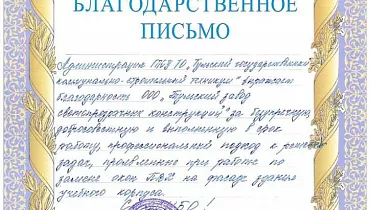 БЛАГОДАРСТВЕННОЕ
ПИСЬМО
Администрация ГПОУ ТО „Тульский государственный
коммунально-строительный техникум" выражает
благодарность ООО „Тульский завод
светопрозрачных конструкций" за безупречную,
добросовестную и выполненную в срок
работу, профессиональный подход к решению
задач, проявленные при работе по
замене окон ПВХ на фасаде здания
учебного корпуса.